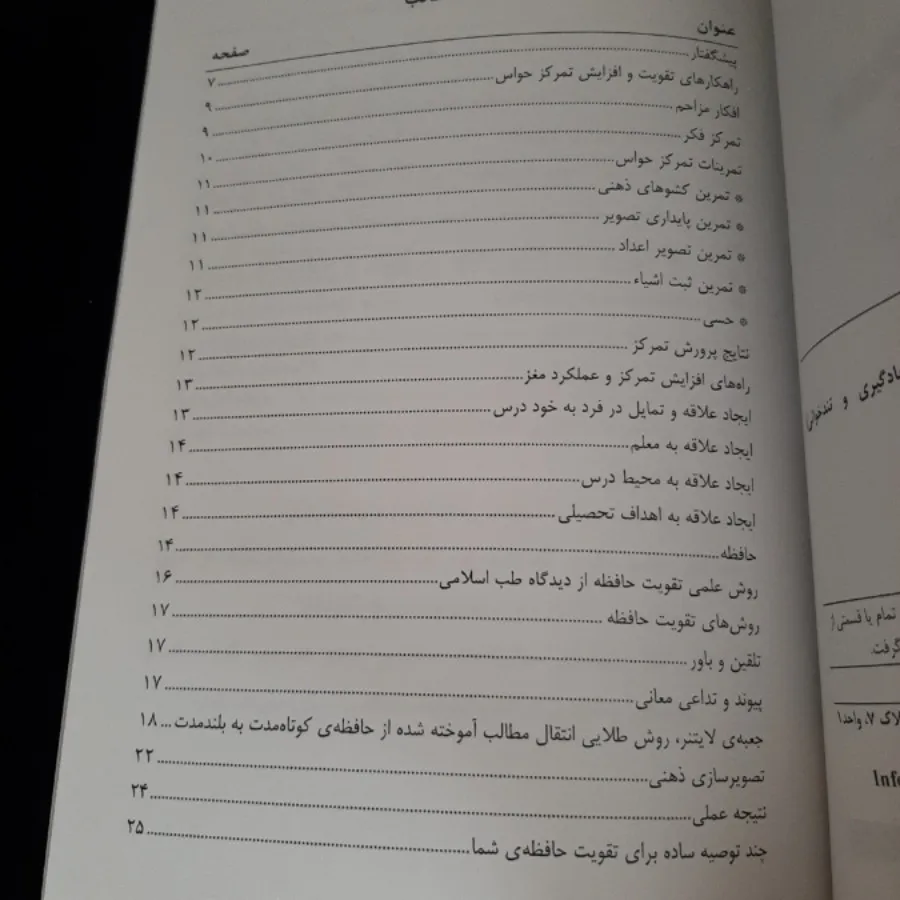 عنوان صفحه
پیشگفتار ۷
راهکارهای تقویت و افزایش تمرکز حواس ۹
افکار مزاحم ۹
تمرکز فکر ۱۰
تمرینات تمرکز حواس ۱۱
* تمرین کشوهای ذهنی ۱۱
* تمرین پایداری تصویر ۱۱
* تمرین تصویر اعداد ۱۱
* تمرین ثبت اشیاء ۱۲
* حسی ۱۲
نتایج پرورش تمرکز ۱۲
راه‌های افزایش تمرکز و عملکرد مغز ۱۳
ایجاد علاقه و تمایل در فرد به خود درس ۱۳
ایجاد علاقه به معلم ۱۴
ایجاد علاقه به محیط درس ۱۴
ایجاد علاقه به اهداف تحصیلی ۱۴
حافظه ۱۴
روش علمی تقویت حافظه از دیدگاه طب اسلامی ۱۶
روش‌های تقویت حافظه ۱۷
تلقین و باور ۱۷
پیوند و تداعی معانی ۱۷
جعبه‌ی لایتنر، روش طلایی انتقال مطالب آموخته شده از حافظه‌ی کوتاه‌مدت به بلندمدت ... ۱۸
تصویرسازی ذهنی ۲۲
نتیجه عملی ۲۴
چند توصیه ساده برای تقویت حافظه‌ی شما ۲۵
و تندخوانی
تمام یا قسمتی از
گرفت.
۷، واحد۱